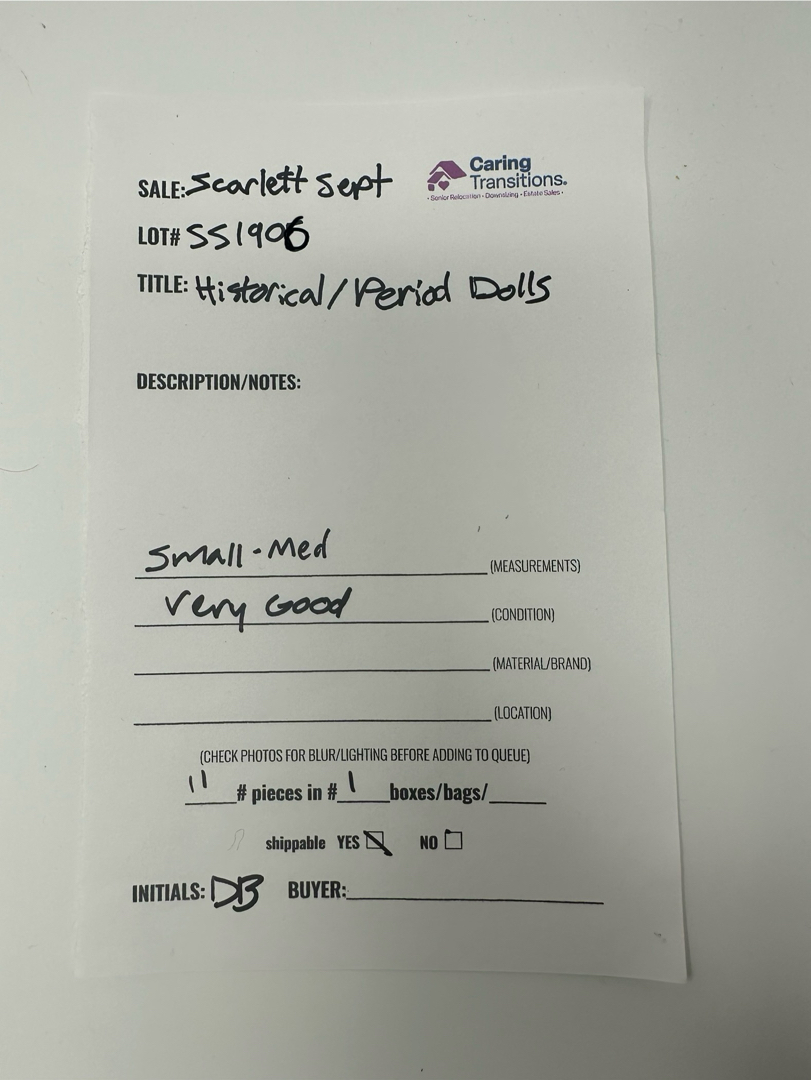 Caring
SALE: Scarlett Sept Transitions.
• Senior Relocation • Downsizing • Estate Sales •
LOT# SS1906
TITLE: Historical/Period Dolls
DESCRIPTION/NOTES:
Small-Med (MEASUREMENTS)
Very Good (CONDITION)
(MATERIAL/BRAND)
(LOCATION)
(CHECK PHOTOS FOR BLUR/LIGHTING BEFORE ADDING TO QUEUE)
11 # pieces in # 1 boxes/bags/
shippable YES NO
INITIALS: DB BUYER: